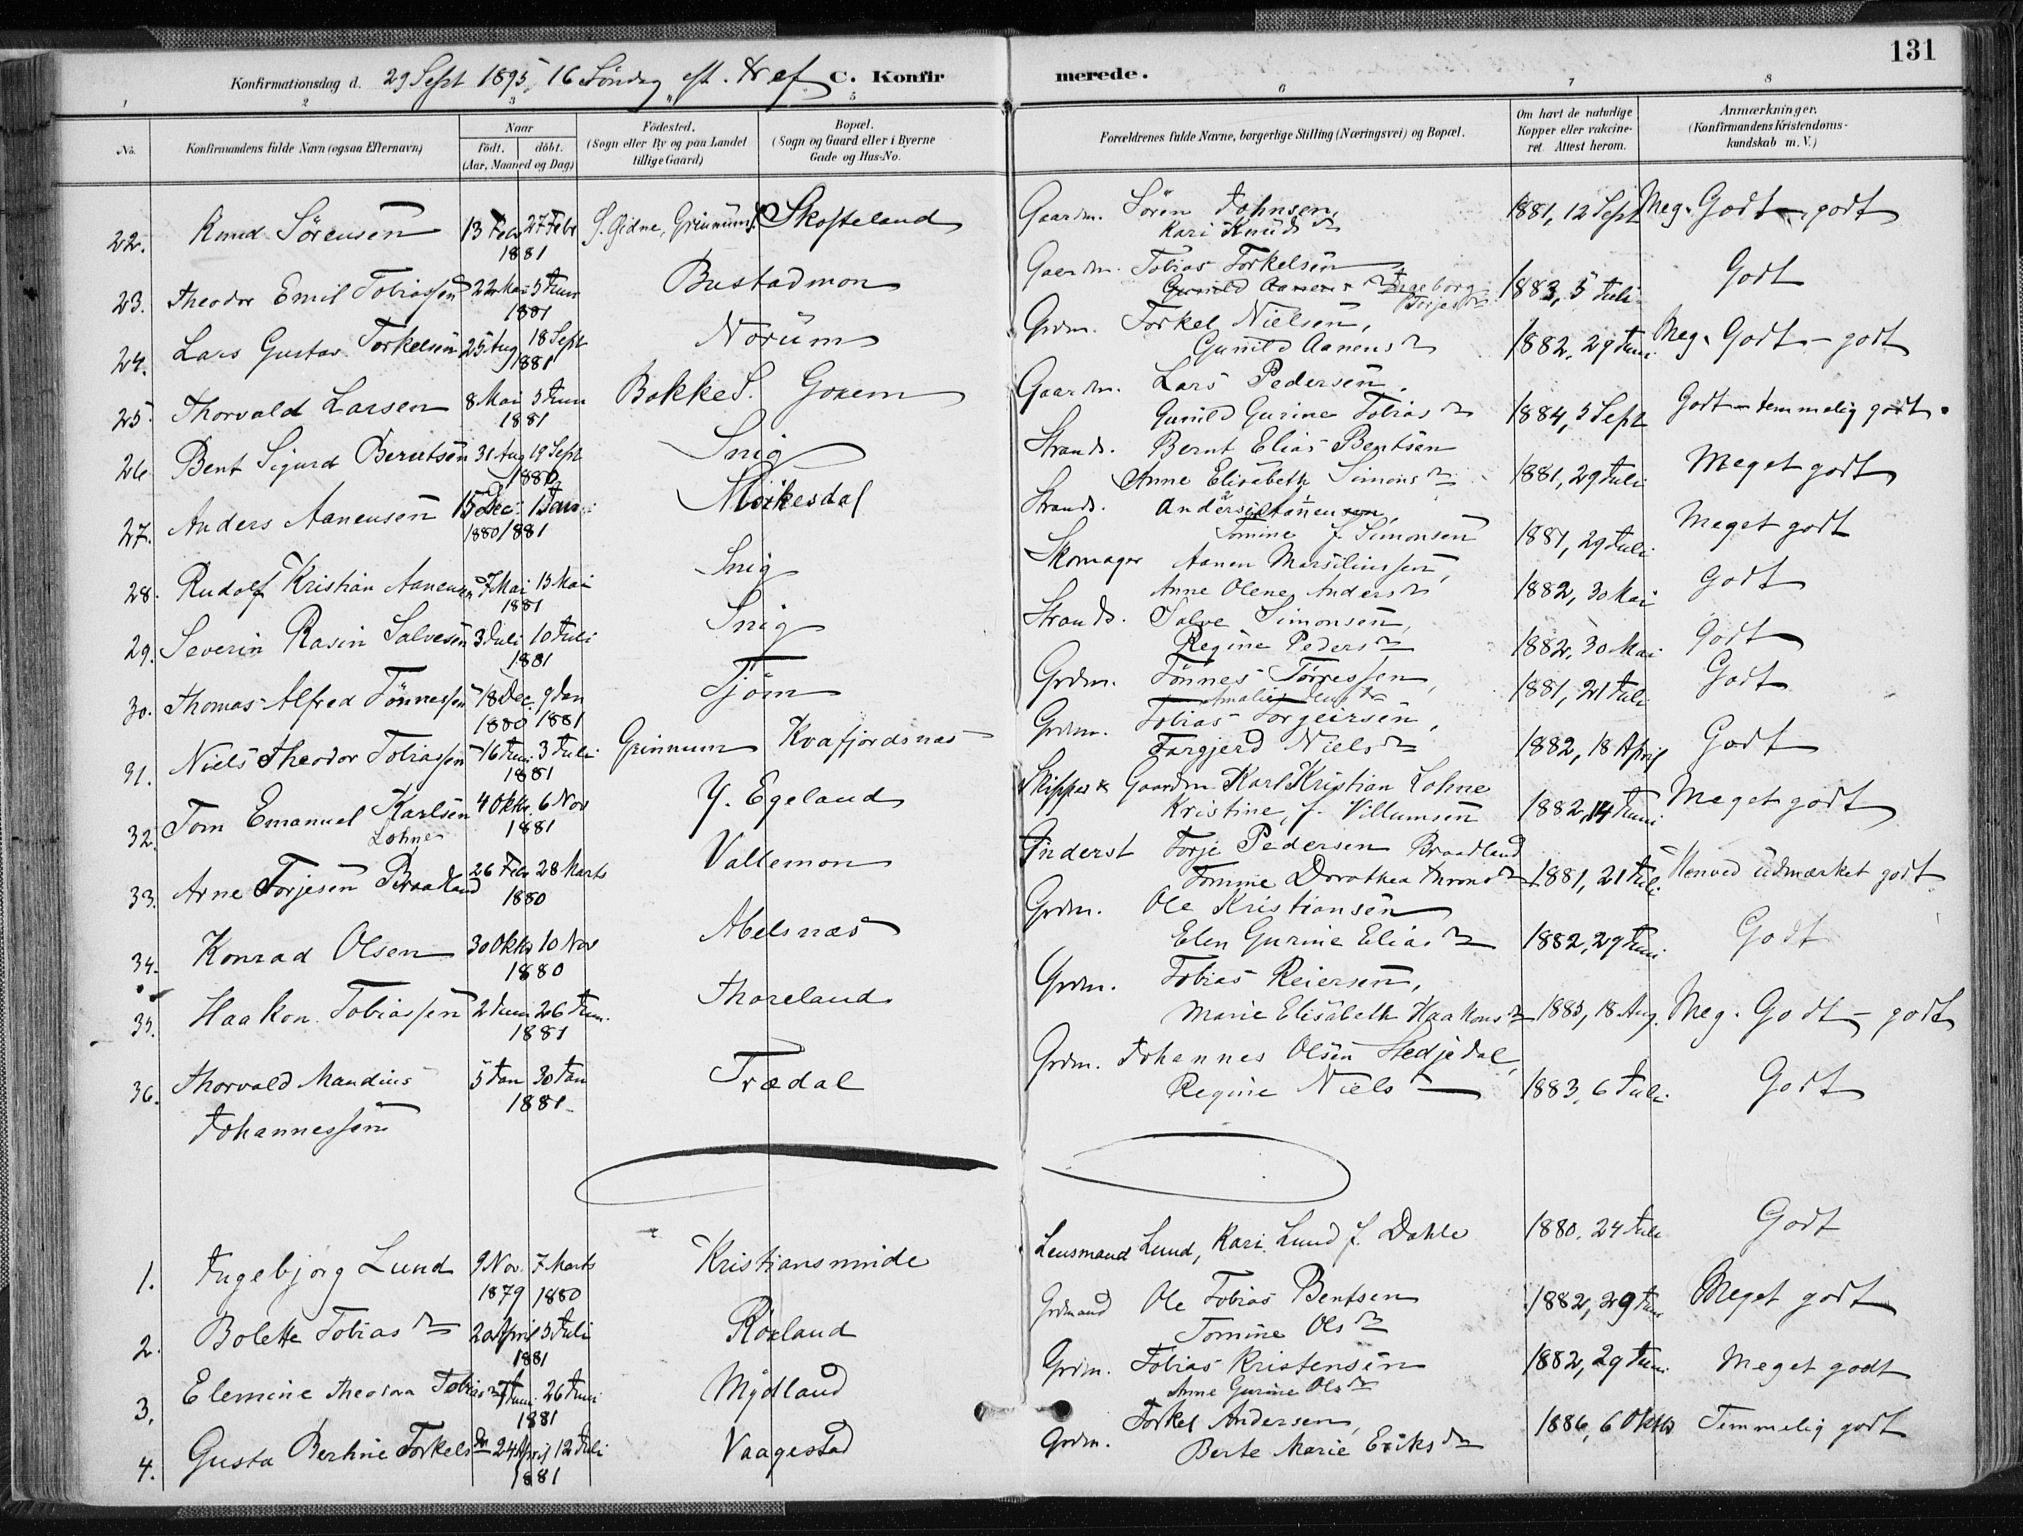 131
Konfirmationsdag d. 29 Sept 1895, 16 Söndag eft. Tref. C. Konfirmerede.
1 2 3 5 6 7 8
No. Konfirmandens fulde Navn (ogsaa Efternavn) Naar födt. döbt. (Aar, Maaned og Dag) Födested. (Sogn eller By og paa Landet tillige Gaard) Bopæl. (Sogn og Gaard eller i Byerne Gade og Hus-No. Forældrenes fulde Navne, borgerlige Stilling (Næringsvei) og Bopæl. Om havt de naturlige Kopper eller vakcineret. Attest herom. Anmærkninger. (Konfirmandens Kristendomskundskab m. V.)
22. Knud Sörensen 13 Febr 27 Febr 1881 Skofteland Gaardm. Sören Johnsen, Kari Knudsdr 1881, 12 Sept Meg. Godt - godt
23. Theodor Emil Tobiassen 22 Mai 5 Juni 1881 Bustadmon Gaardm. Tobias Torkelsen Ingeborg Torjesdr 1883, 5 Juli Godt
24. Lars Gustav Torkelsen 25 Aug 18 Sept 1881 Norum Grdm. Torkel Nielsen, Gunild Aanensdr 1882, 29 Juni Meg. Godt - godt
25. Thorvald Larsen 8 Mai 5 Juni 1881 Bakke S. Goxem Gaardm. Lars Pedersen, Gunild Gurine Tobiasdr 1884, 5 Sept Godt - temmelig godt.
26 Bent Sigurd Berntsen 31 Aug 19 Sept 1880 Snig Strands. Bernt Elias Bentsen Anne Elisabeth Simonsdr 1881, 29 Juli Meget godt
27. Anders Aanensen 15 Dec. 1 Jan. 1880 1881 Mörkesdal Strands. Tomine f. Simonsen 1881, 29 Juli Meget godt
28. Rudolf Kristian Aanensen 7 Mai 15 Mai 1881 Snig Skomager Aanen Marsiliussen, Anne Olene Andersdr 1882, 30 Mai Godt
29. Severin Rasin Salvesen 3 Juli 10 Juli 1881 Snig Strands. Salve Simonsen, Regine Pedersdr 1882, 30 Mai Godt
30. Thomas Alfred Tönnessen 18 Dec. 9 Jan 1880 1881 Tjöm Grdm. Tönnes Törressen, 1881, 21 Juli Godt
31. Niels Theodor Tobiassen 16 Juni 3 Juli 1881 Grinnum Kvafjordsnes Grdm. Tobias Torgeirsen, Targjerd Nielsdr 1882, 18 April Godt
32. Tom Emanuel Karlsen Lohne 4 Oktr. 6 Nov 1881 Y. Egeland Skipper & Gaardm Karl Kristian Lohne Kristine, f. Villumsen 1882, 14 Juni Meget godt
33. Arne Torjesen Braadland 26 Febr 28 Marts 1880 Vallemon Inderst Torje Pedersen Braadland Tomine Dorothea 1881, 21 Juli Henved udmærket godt
34. Konrad Olsen 30 Oktr 10 Nov 1880 Abelsnæs Grdm. Ole Kristiansen Elen Gurine Eliasdr 1882, 29 Juni Godt
35. Haakon Tobiassen 2 Juni 26 Jun. 1881 Thoreland Grdm. Tobias Reiersen, Marie Elisabeth Haakonsdr 1885, 18 Aug. Meg. Godt - godt
36. Thorvald Mandius Johannessen 5 Jan 30 Jan 1881 Trædal Grdm. Johannes Olsen Stedjedal, Regine Nielsdr 1883, 6 Juli Godt
1. Ingebjörg Lund 9 Nov. 7 Marts 1879 1880 Kristiansminde Lensmand Lund, Kari Lund f. Dahle 1880, 24 Juli Godt
2. Bolette Tobiasdr 20 April 5 Juli 1881 Röxland Grdmand Ole Tobias Bentsen Tomine Olsdr 1882, 29 Jun Meget godt
3. Elemine Theodora Tobiasdr 7 Juni 26 Juni 1881 Mydland Grdm. Tobias Kristensen Anne Gurine Olsdr 1882, 29 Juni Meget godt
4. Gusta Bertine Torkelsdr 24 April 12 Juli 1881 Vaagestad Grdm. Torkel Andersen, Berte Marie Eriksdr 1886, 6 Oktr Temmelig godt